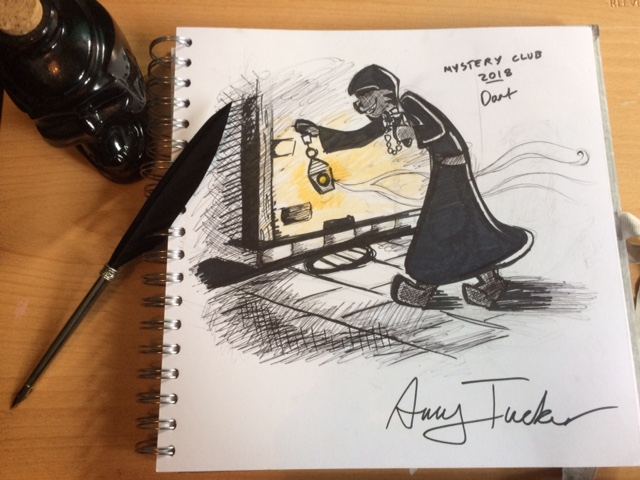 MYSTERY CLUB
2018
Amy Tucker